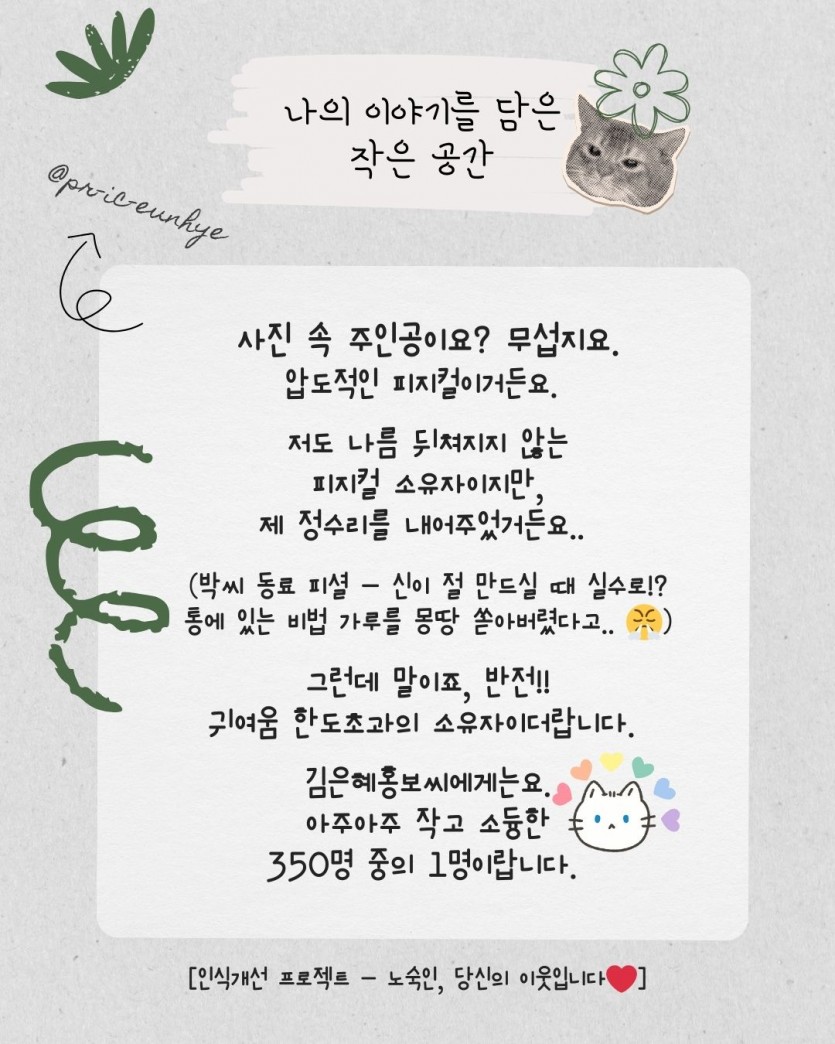 나의 이야기를 담은
작은 공간
@pr-ic-eunhye
사진 속 주인공이요? 무섭지요.
압도적인 피지컬이거든요.
저도 나름 뒤쳐지지 않는
피지컬 소유자이지만,
제 정수리를 내어주었거든요..
(박씨 동료 피셜 – 신이 절 만드실 때 실수로!?
통에 있는 비법 가루를 몽땅 쏟아버렸다고.. 😤)
그런데 말이죠, 반전!!
귀여움 한도초과의 소유자이더랍니다.
김은혜홍보씨에게는요.
아주아주 작고 소듕한
350명 중의 1명이랍니다.
[인식개선 프로젝트 – 노숙인, 당신의 이웃입니다❤️]